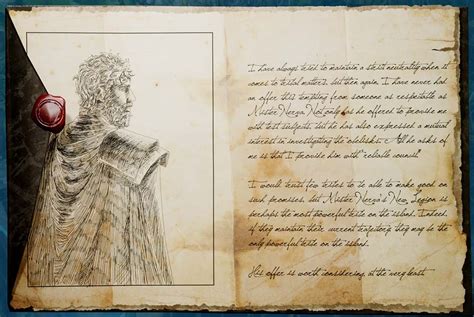 I have always tried to maintain a strict neutrality when it
comes to tribal matters, but then again, I have never had
an offer this tempting from someone as respectable as
Mister Nerva. Not only has he offered to provide me
with test subjects, but he has also expressed a mutual
interest in investigating the obelisks. All he asks of
me is that I provide him with "reliable counsel."
I would trust few tribes to be able to make good on
such promises, but Mister Nerva's New Legion is
perhaps the most powerful tribe on the island. Indeed,
if they maintain their current trajectory, they may be the
only powerful tribe on the island.
His offer is worth considering at the very least.